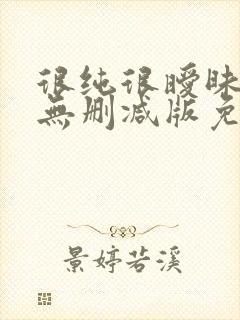 很纯很暧昧
無删减版免
景婷若溪